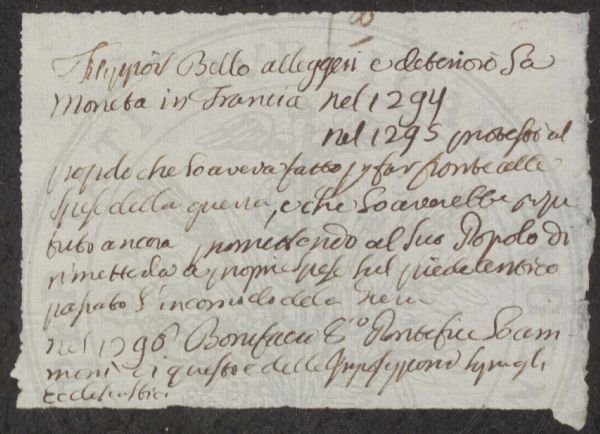 Filippo il Bello alleggerì e deteriorò la
Moneta in Francia nel 1294
nel 1295 protestò al
popolo che lo aveva fatto p far fronte alle
spese della guerra, e che lo averebbe
ancora promettendo al suo Popolo di
rimetterla a proprie spese sul piede antico
passato l'incomodo della
nel 1296 Bonifacio 8º Pontefice lo am-
monì di questo e delle Impo sopra gli
ecclesiastici